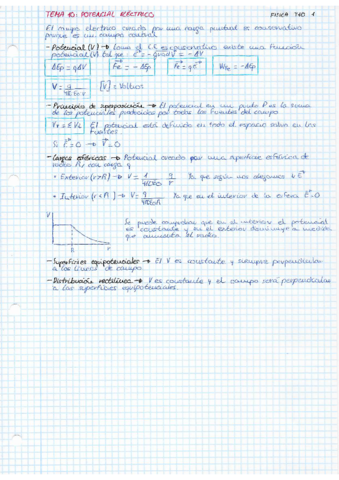 TEMA 10: POTENCIAL ELÉCTRICO FÍSICA TAD 1
El campo eléctrico creado por una carga puntual es conservativo
porque es un campo central.
- Potencial (V) → Como el C.E. es conservativo existe una función
potencial (V) tal que: E = - gradV = - ΔV
ΔEp = qΔV Fe = - ΔEp Fe = qE WFe = - ΔEp
V = q / 4πε₀r [V] = Voltios
- Principio de superposición → El potencial en un punto P es la suma
de los potenciales producidos por todas las fuentes del campo
VT = ΣVi El potencial está definido en todo el espacio salvo en las
fuentes.
Si E = 0 → F = 0
- Cargas esféricas → Potencial creado por una superficie esférica de
radio R con carga q
• Exterior (r>R) → V = 1/4πε₀ q/r Ya que según nos alejamos ↓E
• Interior (r<R) → V = q/4πε₀R Ya que en el interior de la esfera E=0
V
Se puede comprobar que en el interior el potencial
es constante y en el exterior disminuye a medida
que aumenta el radio.
R r
- Superficies equipotenciales → El V es constante y siempre perpendicular
a las líneas de campo
- Distribución rectilínea → V es constante y el campo será perpendicular
a las superficies equipotenciales.